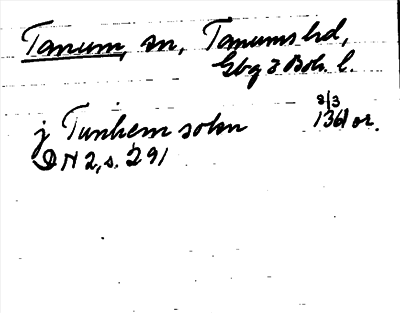 Tanum, sn, Tanums hd,
Gbg o Boh. l.
j Tunhem sokn 8/3 1361 or.
DN 2, s. 291